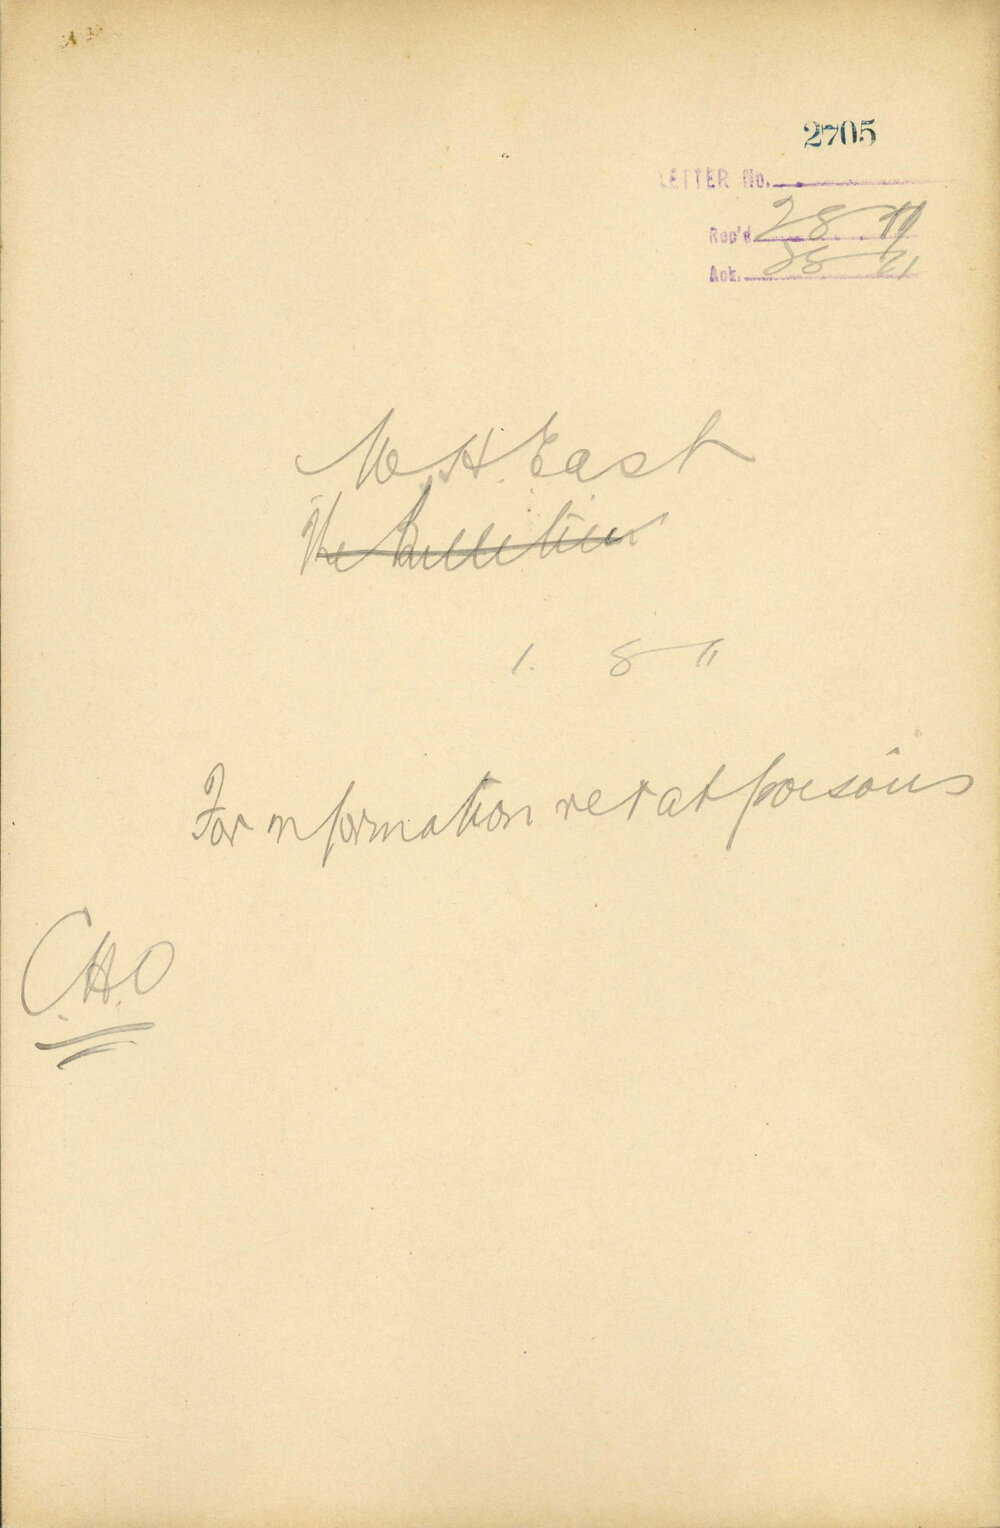 2705
LETTER No.
Rec'd 28 8 11
Ack. 28 8 11
W. H. East
The Bulletin
1. 8 11
For information re rat poisons
C.H.O